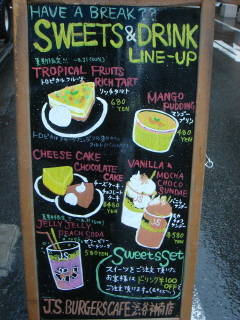 HAVE A BREAK??
SWEETS & DRINK
LINE-UP
TROPICAL FRUITS
RICH TART
トロピカルフルーツ
リッチタルト
680
YEN
MANGO
PUDDING
マンゴー
プリン
480
YEN
CHEESE CAKE
CHOCOLATE
CAKE
チーズケーキ
チョコレート
ケーキ
VANILLA &
MOCHA
CHOCO
SUNDAE
JELLY JELLY
PEACH SODA
ゼリーゼリー
ピーチソーダ
580YEN
Sweets Set
スイーツをご注文頂いた
お客様はドリンク¥100
ご注文頂けます。
J.S. BURGERS CAFE